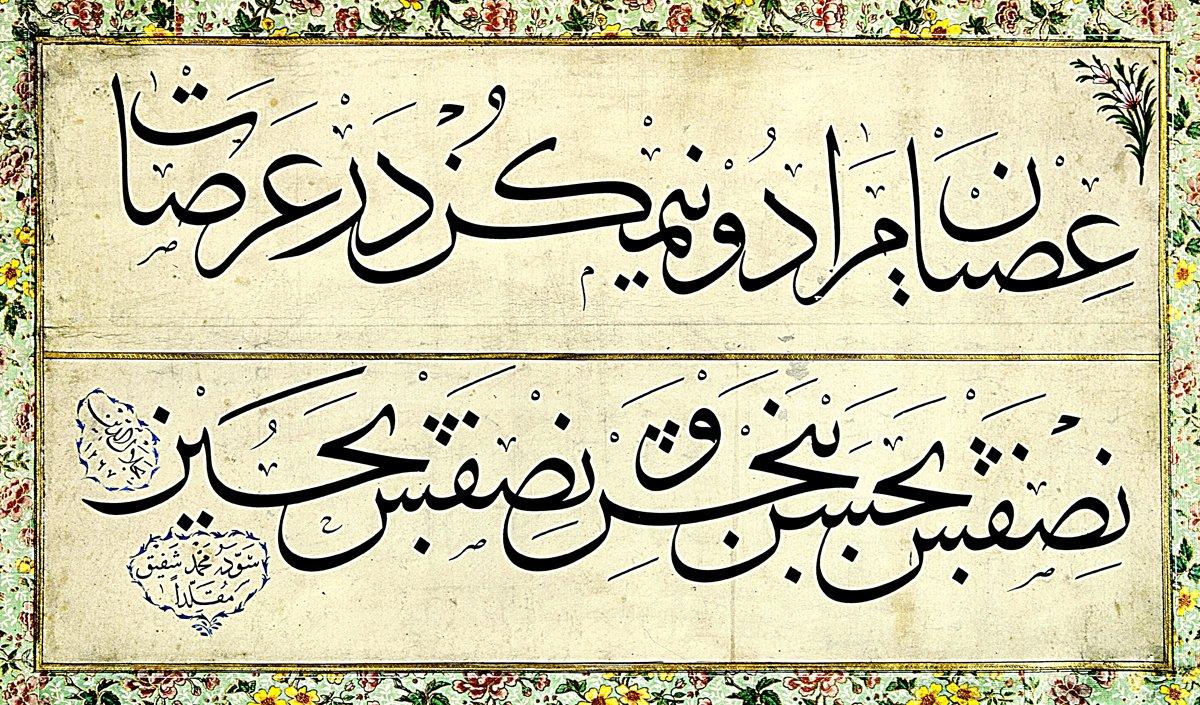 عصیان مرا دو نیم کن در عرصات
نصفش بحسن ببخش و نصفش بحسین
سوده محمد شفیق
مقلداً